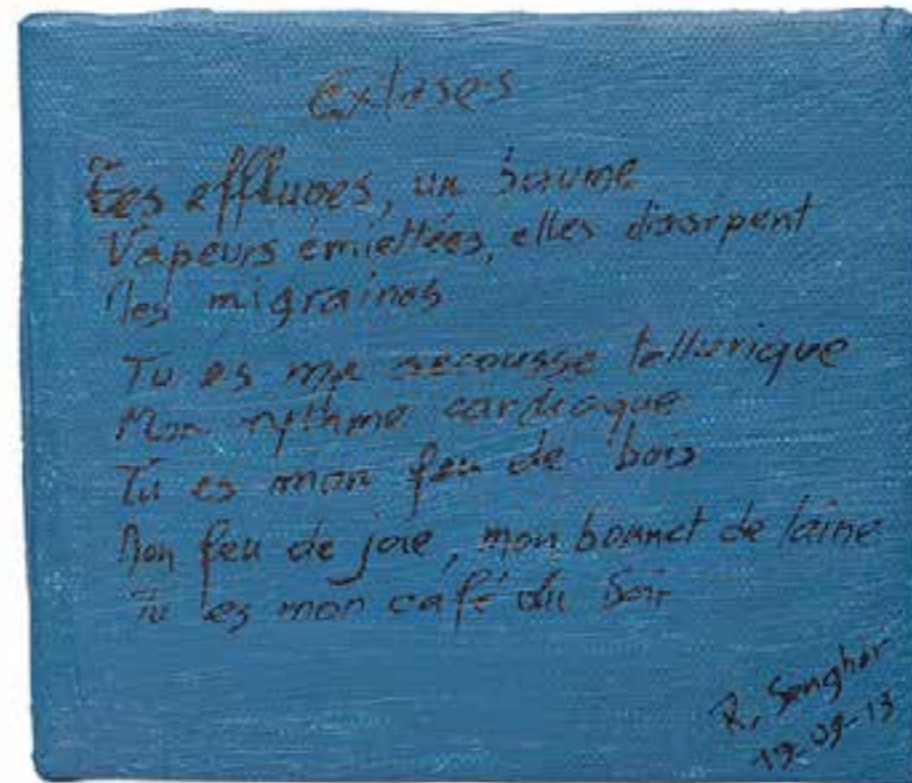 Extases
Tes effluves, un baume
Vapeurs émiettées, elles dissipent
Mes migraines
Tu es ma secousse tellurique
Mon rythme cardiaque
Tu es mon feu de bois
Mon feu de joie, mon bonnet de laine
Tu es mon café du soir
R. Senghor